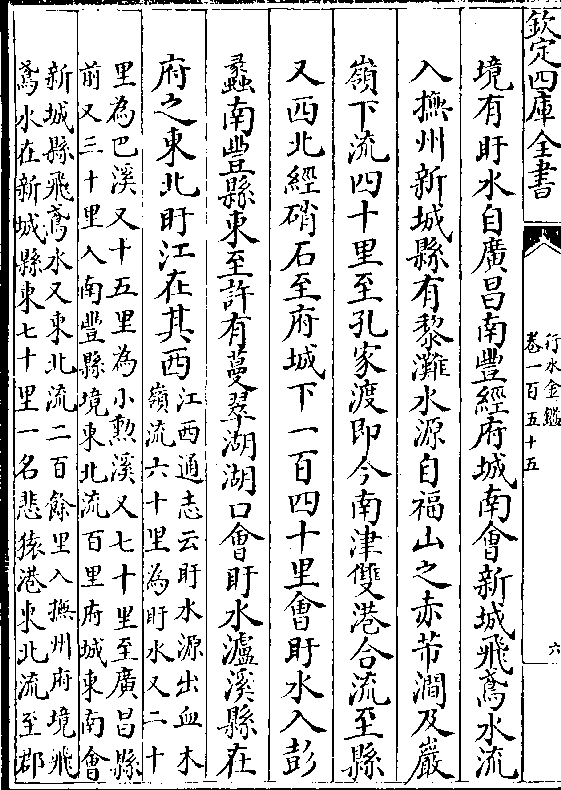 欽定四庫全書
行水金鑑
卷一百五十五
六
境有盱水自廣昌南豐經府城南會新城飛鳶水流
入撫州新城縣有黎灘水源自福山之赤芾澗及巖
嶺下流四十里至孔家渡即今南津雙港合流至縣
又西北經硝石至府城下一百四十里會盱水入彭
蠡南豐縣東至許有蔓翠湖湖口會盱水瀘溪縣在
府之東北盱江在其西
江西通志云盱水源出血木
嶺流六十里為盱水又二十
里為巴溪又十五里為小勲溪又七十里至廣昌縣
前又三十里入南豐縣境東北流百里府城東南會
新城縣飛鳶水又東北流二百餘里入撫州府境飛
鳶水在新城縣東七十里一名悲猿港東北流至郡